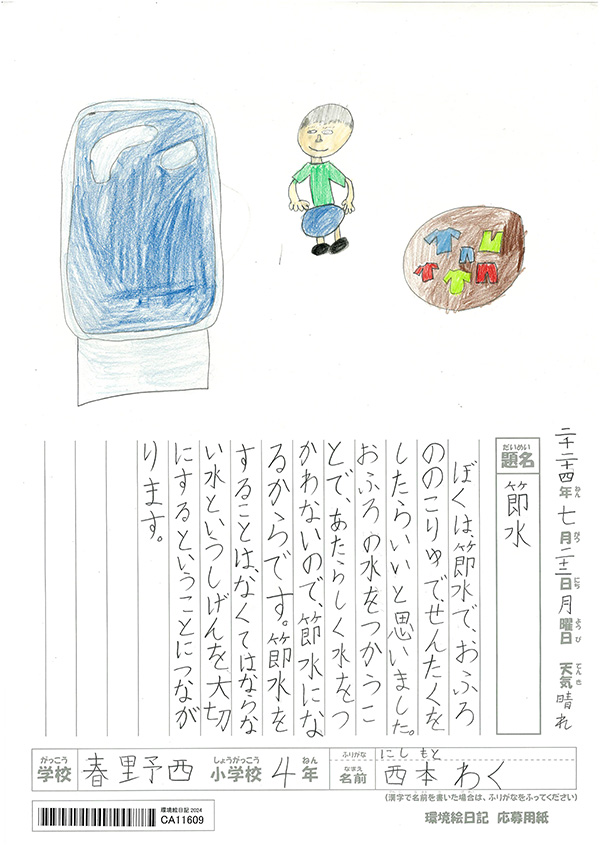 二千二十四年七月二十二日月曜日 天気晴れ
ねん がつ にち ようび てんき
だいめい
題名 節水
ぼくは、節水で、おふろ
ののこりゆでせんたくを
したらいいと思いました。
おふろの水をつかうこ
とで、あたらしく水をつ
かわないので、節水にな
るからです。節水を
することは、なくてはならな
い水というしげんを大切
にするということにつなが
ります。
がっこう しょうがっこう ねん ふりがな にしもと
学校 春野西 小学校 4年 なまえ 名前 西本わく
(漢字で名前を書いた場合は、ふりがなをふってください)
環境絵日記 2024
CA11609
環境絵日記 応募用紙